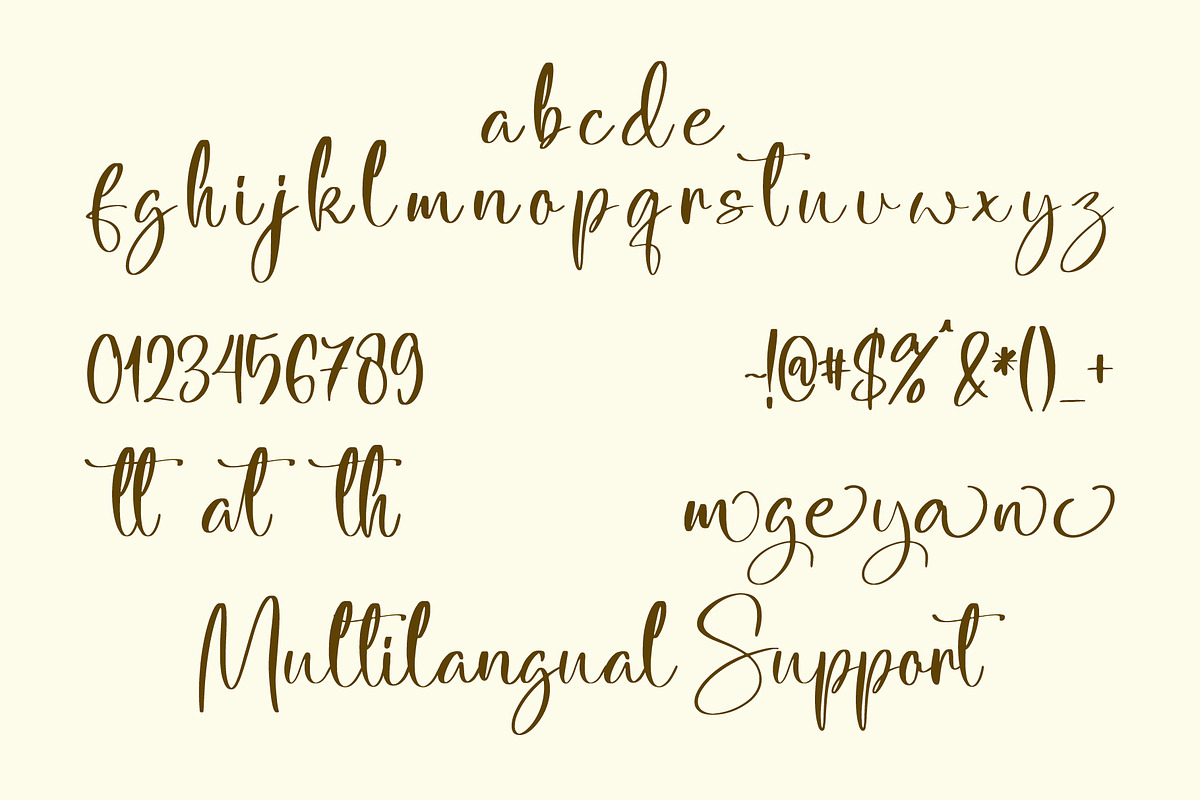 abcde
fghijklmnopqrstuvwxyz
0123456789 ~!@#$%^&*()_+
tt at th mgeyanc
Multilangual Support